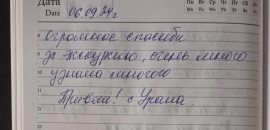 Дата
Date 06.09.24г
Пн Вт Ср Чт Пт Сб Вс
8 Огромное спасибо
9 за экскурсию, очень много
10 узнали многого
11 Привет! с Урала.
12